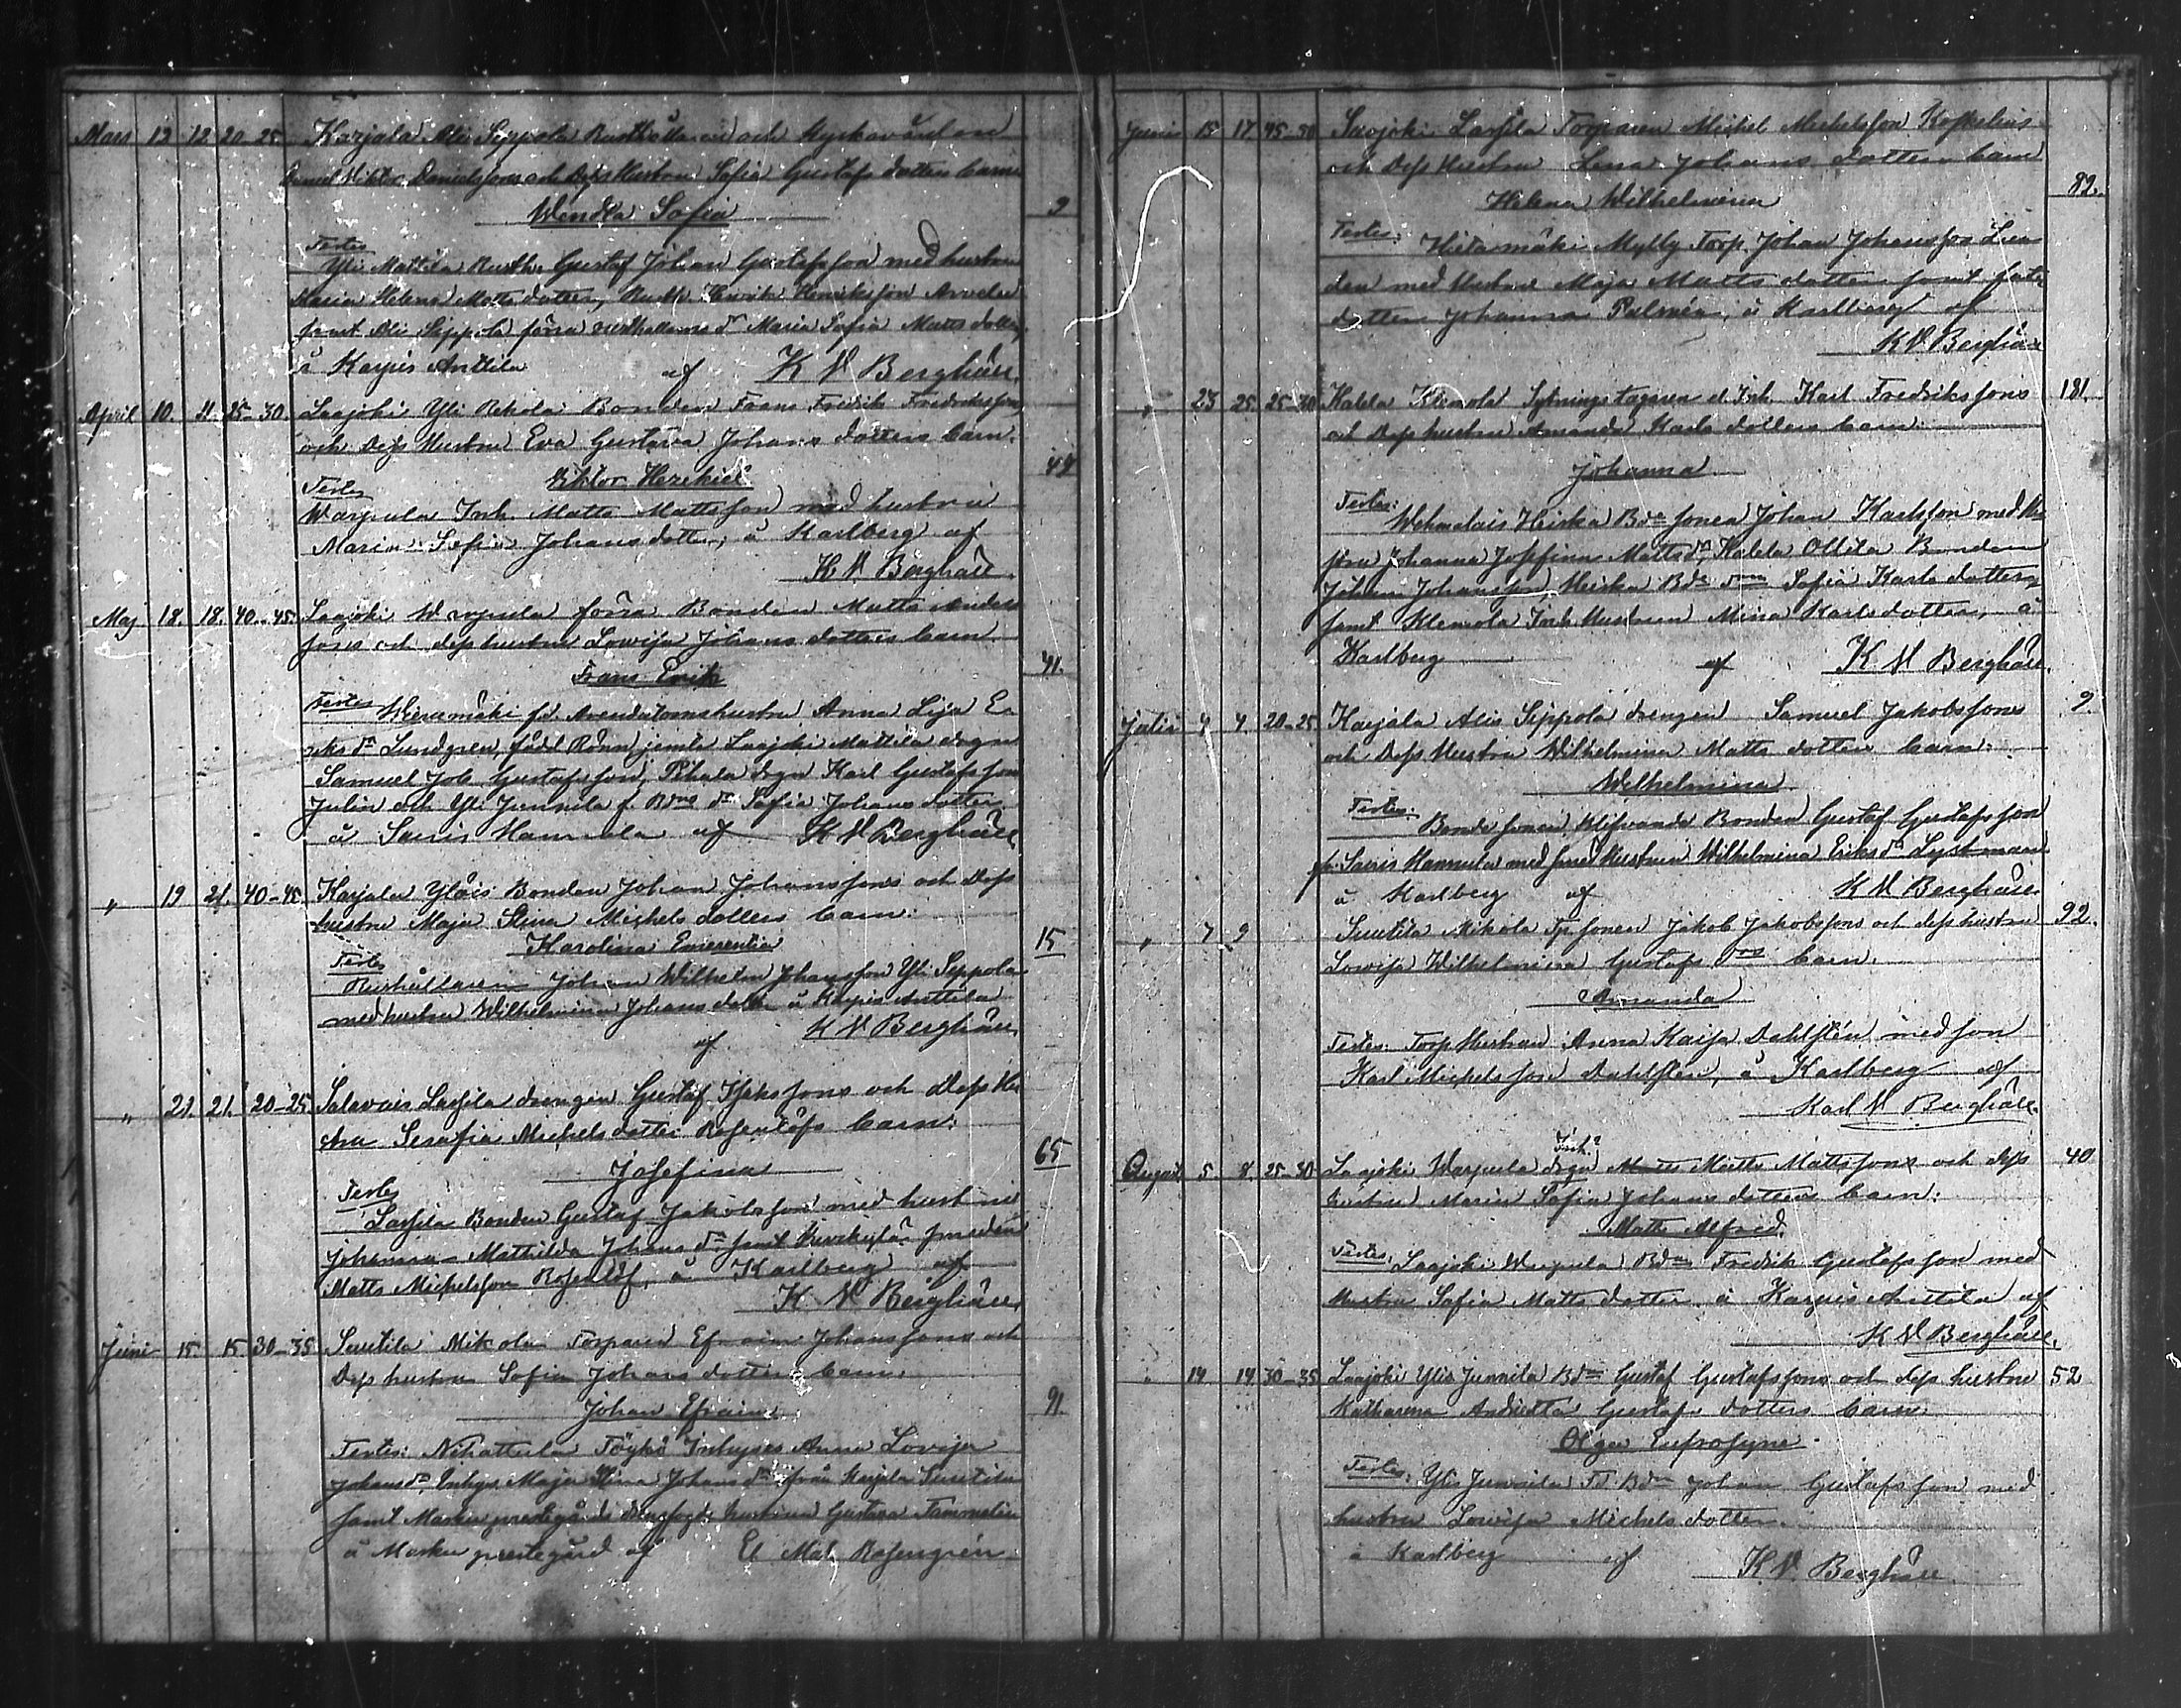 Mars 12 12 20-25 Karjala Ali Seppola Rusthållaren och Kyrkovärden
Samuel Viktor Danielssons och Dess Hustru Sofia Gustafs dotters barn
Wendla Sofia 9
Testes
Yli Mattila Rusth. Gustaf Johan Gustafsson med hustru
Maria Helena Matts dotter, Rusth. Henrik Henriksson Arvela
samt Ali Seppola förra rusthållarens dr Maria Sofia Matts dotter
å Karpis Anttila af K V Berghäll.
April 10. 11. 25-30 Laajoki Yli Rekola Bonden Frans Fredrik Fredriksson
och Dess Hustru Eva Gustava Johans dotters barn.
Viktor Hezekiel 44
Testes
Warpula Inh. Matts Mattsson med hustru
Maria Sofia Johans dotter, å Karlberg af
K V Berghäll.
Maj 18. 18. 40-45. Laajoki Warpula förra Bonden Matts Anders
sons och dess hustru Lowisa Johans dotters barn
Frans Erik 41.
Testes
fd. Arendatorns hustru Anna Lisa E
riks dr Lundgren, född Rönn, jemte Laajoki Mattila drgn
Samuel Job Gustafsson, Pihala drgn Karl Gustafsson
Julin och Yli Junnila f. Bdns dr Sofia Johans dotter
å Sauris Hannula af K V Berghäll
" 19 21. 40-45. Karjala Yläis Bonden Johan Johanssons och Dess
hustru Maja Stina Michels dotters barn:
Karolina Emerentia 15
Testes
Rusthållaren Johan Wilhelm Johansson Yli Seppola
med hustru Wilhelmina Johans dotter å Karpis Anttila
af K V Berghäll.
" 21. 21. 20-25. Salavais Lassila drengen Gustaf Isakssons och Dess Hu
stru Serafia Michels dotter Rosenlöfs barn:
Josefina 65
Testes
Lassila Bonden Gustaf Jakobsson med hustru
Johanna Mathilda Johans dr samt smeden
Matts Michelsson Rosenlöf, å Karlberg af
K V Berghäll.
Juni 15 15 30-35 Suutila Mikola Torparen Efraim Johanssons och
Dess hustru Sofia Johans dotters barn.
Johan Efraim 91.
Testes: Nihattula Töykö Inhyses Anna Lovisa
Johans dr Inhys. Maja Stina Johans dr från Karjala Suutila
samt Masku prestegårds drengfogds hustru Gustava Tammelin
å Masku prestegård af El Mat Rosengrén
Junii 15 17. 45-50 Laajoki Lassila Torparen Michel Michelsson Koskelins
och Dess Hustru Lena Johans dotters barn
Helena Wilhelmina 82.
Testes: Hietamäki Mylly Torp. Johan Johansson Lin
den med Hustru Maja Matts dotter samt
dotter Johanna Palmén, å Karlberg af
K V Berghäll
" 23 25. 25-30 Kalela Klemola Sytningstagaren et Inh. Karl Fredrikssons
och Dess hustru Amanda Karls dotters barn. 181.
Johanna
Testes:
Wehmalais Heikka Bde sonen Johan Karlsson med Hu
strun Johanna Josefina Matts dr, Kalela Ollila Bonden
Johan Johansson, Heikka Bde drn Sofia Karls dotter
samt Klemola Inh. Hustrun Mina Karls dotter, å
Karlberg af K V Berghäll.
Julii 4 4. 20-25 Karjala Alis Seppola drengen Samuel Jakobssons 9
och Dess Hustru Wilhelmina Matts dotters barn.
Wilhelmina
Testes:
Bonde sonen, blifvande Bonden Gustaf Gustafsson
fr. Sauris Hannula med Hustrun Wilhelmina Eriks dr
å Karlberg af K V Berghäll.
" 7 9 Suutila Mikola Tp sonen Jakob Jakobssons och dess hustru 92.
Lowisa Wilhelmina Gustafs drs barn.
Amanda
Testes: Torp Hustrun Anna Kaisa Dahlstén med son
Karl Michelsson Dahlstén, å Karlberg af
Karl V Berghäll.
August 5. 8. 25-30 Laajoki Warpula drgn Inh. Matts Mattssons och dess 40
hustru Maria Sofia Johans dotters barn:
Matts Alfred.
Testes: Laajoki Warpula Bdn Fredrik Gustafsson med
Hustru Sofia Matts dotter å Karpis Anttila af
K V Berghäll.
" 14 14 30-35 Laajoki Ylis Junnila Bdn Gustaf Gustafssons och dess hustru 52
Katharina Andrietta Gustafs dotters barn.
Olga Eufrosyne
Testes: Ylis Junnila Fd Bdn Johan Gustafsson med
hustru Lowisa Michels dotter.
å Karlberg af K. V. Berghäll